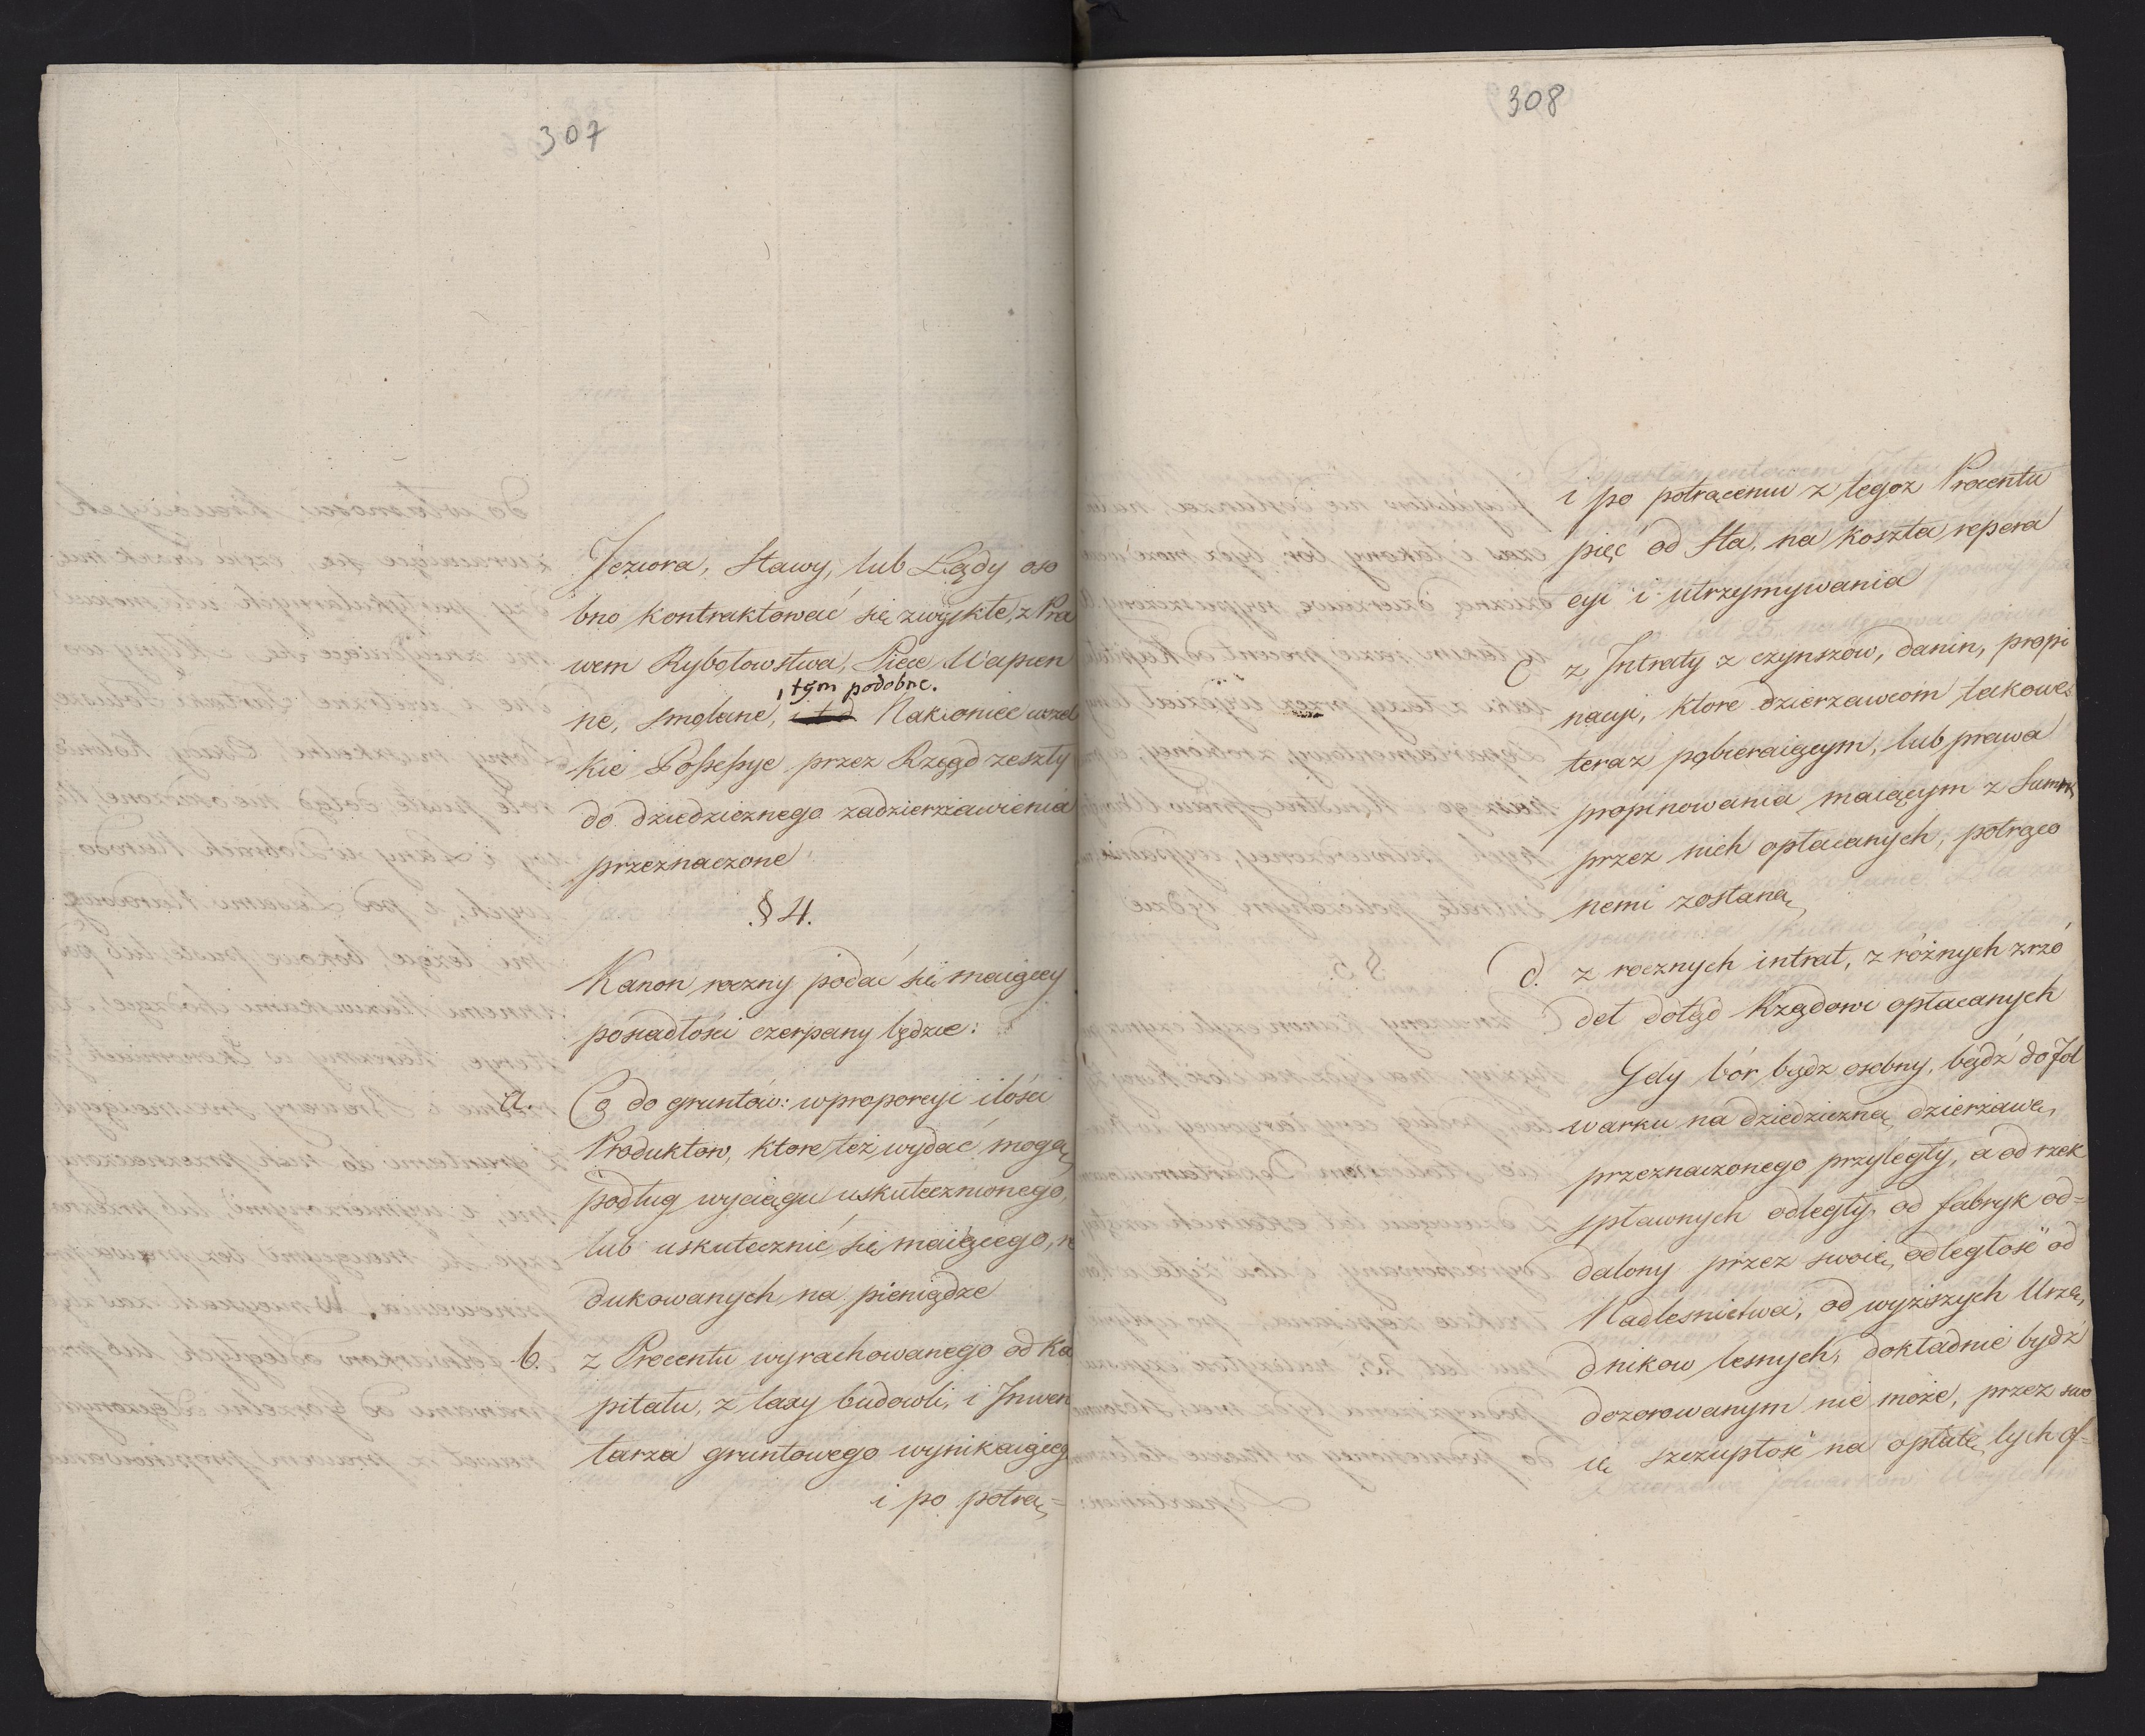 307
Jeziora, Stawy, lub Lądy oso
bno kontraktować się zwykłe, z Pra
wem Rybołowstwa, Piece Wapien
i tym podobne.
ne, smolane, i t d Nakoniec wszel
kie Possessye przez Rząd zeszły
do dziedzicznego zadzierżawienia
przeznaczone
§ 4.
Kanon roczny podać się maiącey
posiadłości czerpany będzie:
a. Co do gruntów: w proporcyi ilości
Produktow, ktore też wydać mogą
podług wyciągu uskutecznionego,
lub uskutecznić się maiącego, re
dukowanych na pieniądze
b. z Procentu wyrachowanego od Ka
pitału, z taxy budowli, i Inwen
tarza gruntowego wynikaiącego
i po potrą=
308
i po potrąceniu z tegoz Procentu
pięć od Sta, na koszta repera
cyi i utrzymywania
c z Intraty z czynszów, danin, propi
nacyi, ktore dzierzawcom takowe
teraz pobieraiącym, lub prawa
propinowania maiącym z Summ
przez nich opłacanych, potrąco
nemi zostaną
d. z rocznych intrat, z różnych zrzó
deł dotąd Rządowi opłacanych
Gdy bór bądz osobny, bądź do fol
warku na dziedziczną dzierżawę
przeznaczonego przyległy, a od rzek
spławnych odległy, od fabryk od=
dalony przez swoię odległość od
Nadlesnictwa, od wyższych Urzę
dnikow lesnych, dokładnie bydź
dozorowanym nie może, przez swo
ię szczupłość na opłatę tych of=